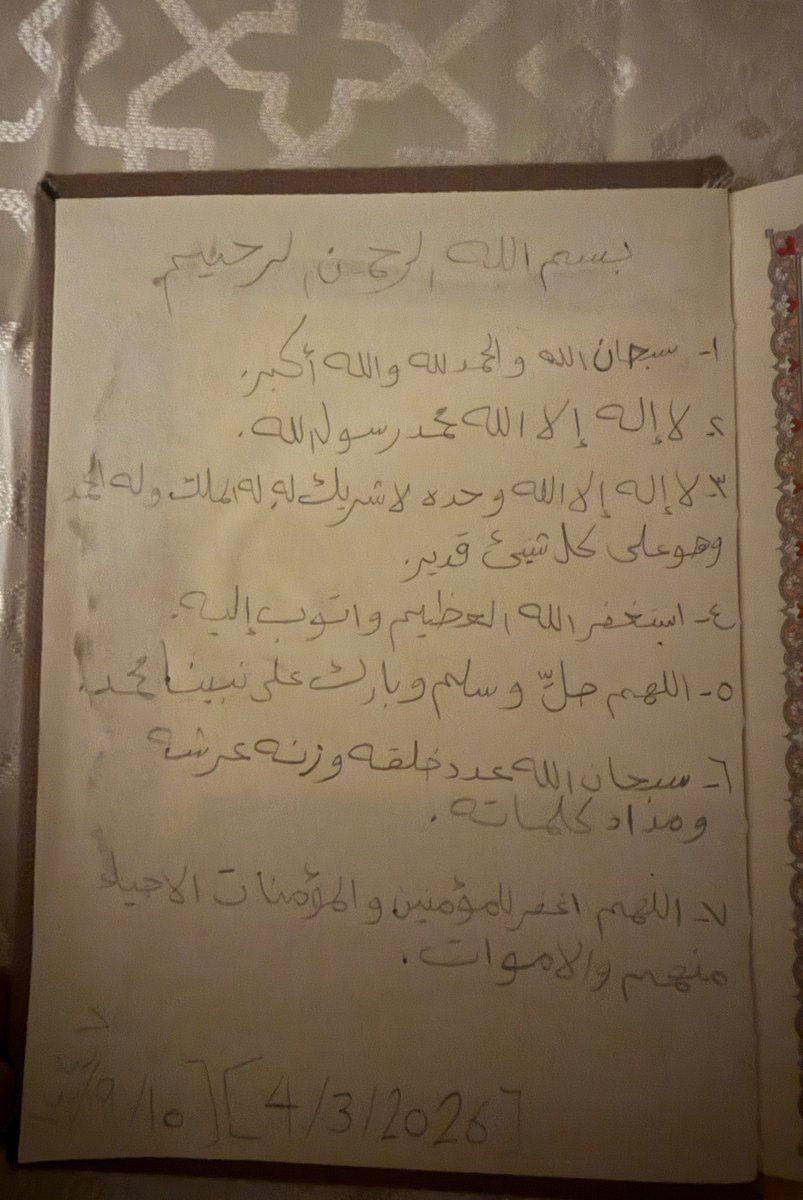 بسم الله الرحمن الرحيم
١- سبحان الله والحمد لله والله أكبر.
٢ لا إله إلا الله محمد رسول الله.
٣- لا إله إلا الله وحده لا شريك له له الملك وله الحمد
وهو على كل شيئ قدير.
٤- استغفر الله العظيم واتوب إليه.
٥- اللهم صلِّ وسلم وبارك على نبينا محمد.
٦- سبحان الله عدد خلقه وزنه عرشه
ومداد كلماته.
٧- اللهم اغفر للمؤمنين والمؤمنات الاحياء
منهم والاموات.
[4/3/2026]